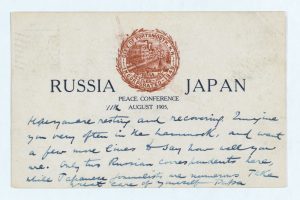 CITY OF PORTSMOUTH, N.H.
RUSSIA JAPAN
PEACE CONFERENCE
11th AUGUST 1905.
Hope you are resting and recovering. Imagine
you very often in the hammock, and want
a few more lines to say how well you
are. Only two Russian correspondents here,
while Japanese journalists are numerous Take
Great care of yourself